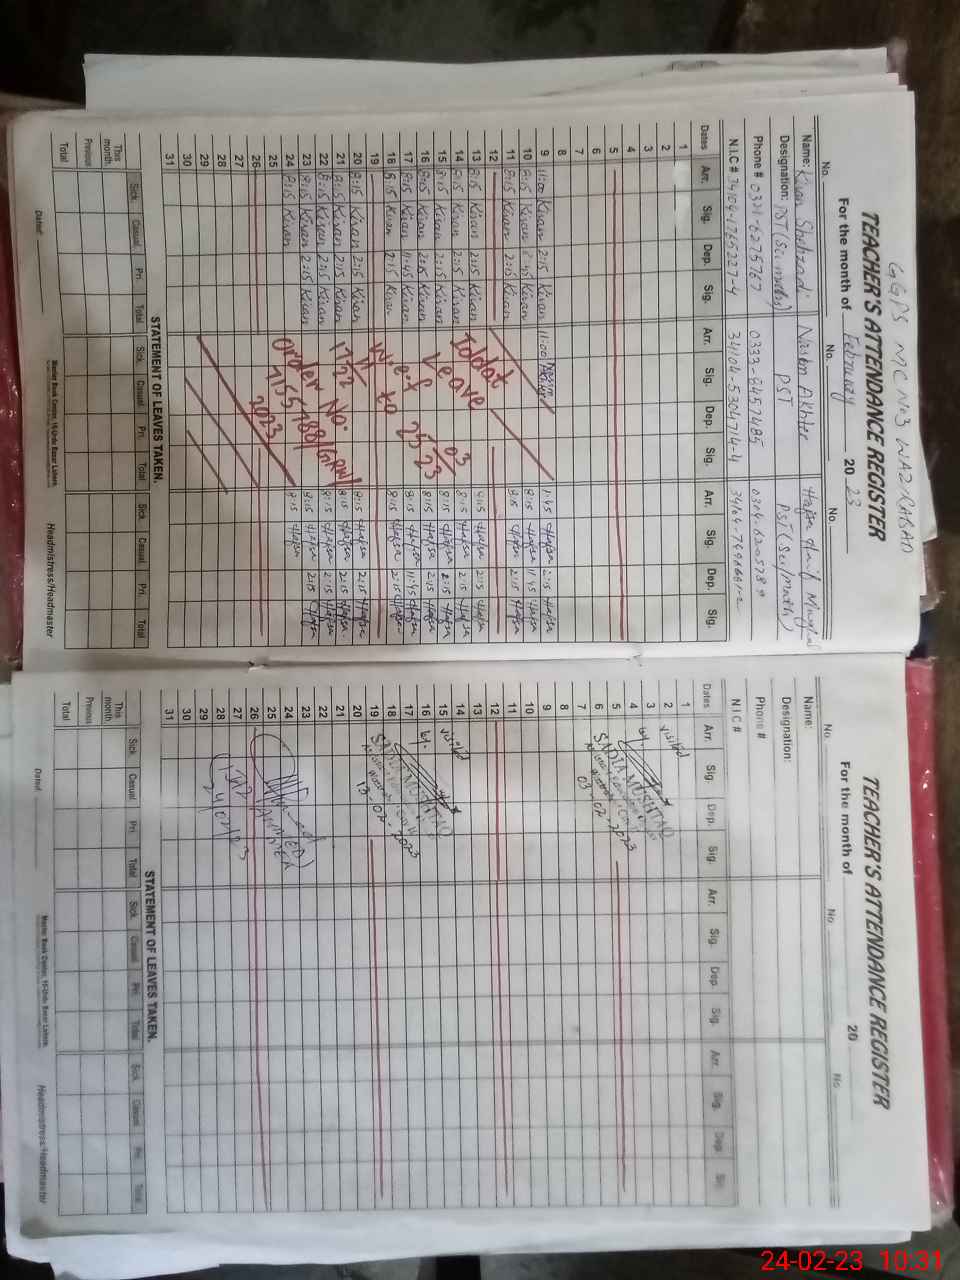 GGPS MC NO3 WAZIRABAD
TEACHER'S ATTENDANCE REGISTER
For the month of February 20 23
No. No. No.
Name: Kiran Shehzadi Naseem Akhter Hafsa Hanif Mughal
Designation: PST (Sci math) PST PST (Sci/math)
Phone # 0321-6275767 0333-8457485
N.I.C # 34104-5304714-4
Dates Arr. Sig. Dep. Sig. Arr. Sig. Dep. Sig. Arr. Sig. Dep. Sig.
1
2
3
4
5
6
7
8
9 11:00 Kiran 2:15 Kiran 11:00 1:45 Hafsa 2:15 Hafsa
10 8:15 Kiran 11:45 Kiran 8:15 Hafsa 11:45 Hafsa
11 8:15 Kiran 2:15 Kiran 8:15 Hafsa 2:15 Hafsa
12
13 8:15 Kiran 2:15 Kiran 8:15 Hafsa 2:15 Hafsa
14 8:15 Kiran 2:15 Kiran 8:15 Hafsa 2:15 Hafsa
15 8:15 Kiran 2:15 Kiran 8:15 Hafsa 2:15 Hafsa
16 8:15 Kiran 2:15 Kiran 8:15 Hafsa 2:15 Hafsa
17 8:15 Kiran 11:45 Kiran 8:15 Hafsa 11:45 Hafsa
18 8:15 Kiran 2:15 Kiran 8:15 Hafsa 2:15 Hafsa
19
20 8:15 Kiran 2:15 Kiran 8:15 Hafsa 2:15 Hafsa
21 8:15 Kiran 2:15 Kiran 8:15 Hafsa 2:15 Hafsa
22 8:15 Kiran 2:15 Kiran 8:15 Hafsa 2:15 Hafsa
23 8:15 Kiran 2:15 Kiran 8:15 Hafsa 2:15 Hafsa
24 8:15 Kiran 8:15 Hafsa
25
26
27
28
29
30
31
Iddat
Leave
w.e.f
to
order No:
2023
STATEMENT OF LEAVES TAKEN.
Sick Casual Pri. Total Sick Casual Pri. Total Sick Casual Pri. Total
This month
Previous
Total
Dated Master Book Center, 16-Urdu Bazar Lahore. Headmistress/Headmaster
TEACHER'S ATTENDANCE REGISTER
For the month of 20
No. No. No.
Name:
Designation:
Phone #
N.I.C #
Dates Arr. Sig. Dep. Sig. Arr. Sig. Dep. Sig. Arr. Sig. Dep. Sig.
1
2
3
4
5
6
7
8
9
10
11
12
13
14
15
16
17
18
19
20
21
22
23
24
25
26
27
28
29
30
31
visited
by.
SADIA MUSHTAQ
03-02-2023
visited
by.
SADIA MUSHTAQ
13-02-2023
STATEMENT OF LEAVES TAKEN.
Sick Casual Pri. Total Sick Casual Pri. Total Sick Casual Pri. Total
This month
Previous
Total
Dated Master Book Center, 16-Urdu Bazar Lahore. Headmistress/Headmaster
24-02-23 10:31